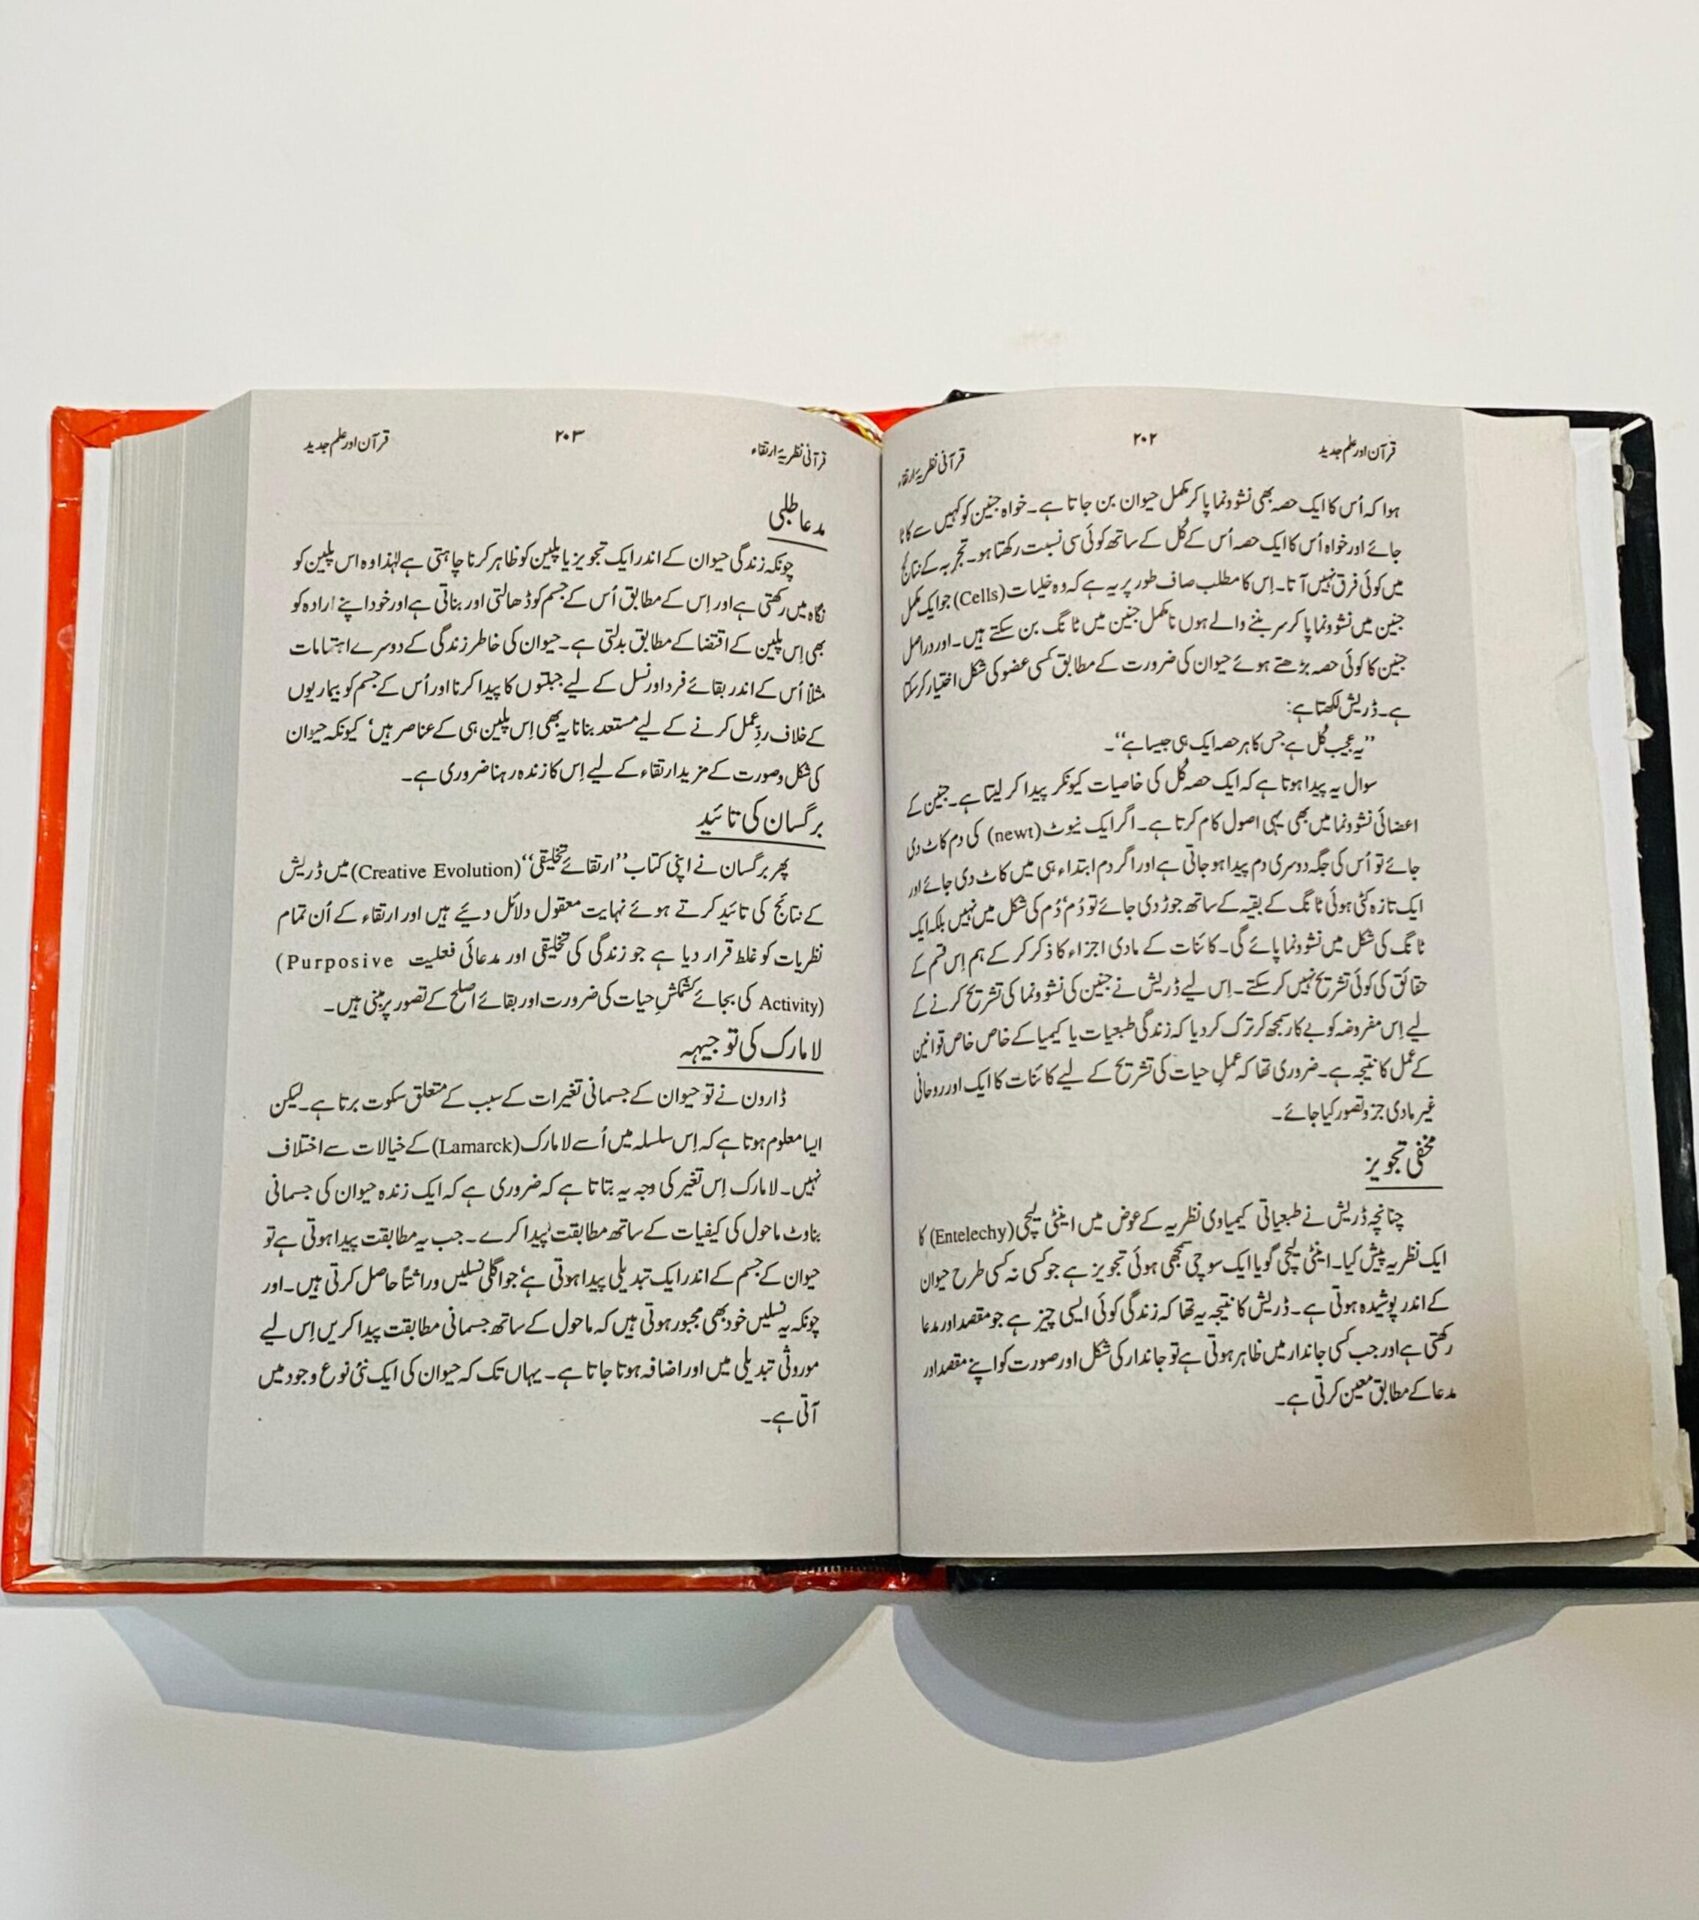 قرآن اور علم جدید ۲۰۲ قرآنی نظریۂ ارتقاء
ہوا کہ اُس کا ایک حصہ بھی نشوونما پا کر مکمل حیوان بن جاتا ہے۔ خواہ جنین کو کہیں سے کاٹا
جائے اور خواہ اُس کا ایک حصہ اُس کے کُل کے ساتھ کوئی سی نسبت رکھتا ہو۔ تجربہ کے نتائج
میں کوئی فرق نہیں آتا۔ اِس کا مطلب صاف طور پر یہ ہے کہ وہ خلیات (Cells) جو ایک مکمل
جنین میں نشوونما پا کر سر بننے والے ہوں نامکمل جنین میں ٹانگ بن سکتے ہیں۔ اور دراصل
جنین کا کوئی حصہ بڑھتے ہوئے حیوان کی ضرورت کے مطابق کسی عضو کی شکل اختیار کر سکتا
ہے۔ ڈریش لکھتا ہے:
’’یہ عجیب کُل ہے جس کا ہر حصہ ایک ہی جیسا ہے‘‘۔
سوال یہ پیدا ہوتا ہے کہ ایک حصہ کُل کی خاصیات کیونکر پیدا کر لیتا ہے۔ جنین کے
اعضائی نشوونما میں بھی یہی اصول کام کرتا ہے۔ اگر ایک نیوٹ (newt) کی دم کاٹ دی
جائے تو اُس کی جگہ دوسری دم پیدا ہو جاتی ہے اور اگر دم ابتداء ہی میں کاٹ دی جائے اور
ایک تازہ کٹی ہوئی ٹانگ کے بقیہ کے ساتھ جوڑ دی جائے تو دُم‘ دُم کی شکل میں نہیں بلکہ ایک
ٹانگ کی شکل میں نشوونما پائے گی۔ کائنات کے مادی اجزاء کا ذکر کر کے ہم اِس قسم کے
حقائق کی کوئی تشریح نہیں کر سکتے۔ اِس لیے ڈریش نے جنین کی نشوونما کی تشریح کرنے کے
لیے اِس مفروضہ کو بے کار سمجھ کر ترک کر دیا کہ زندگی طبعیات یا کیمیا کے خاص خاص قوانین
کے عمل کا نتیجہ ہے۔ ضروری تھا کہ عملِ حیات کی تشریح کے لیے کائنات کا ایک اور روحانی
غیر مادی جزو تصور کیا جائے۔
مخفی تجویز
چنانچہ ڈریش نے طبعیاتی کیمیاوی نظریہ کے عوض میں اینٹی لیچی (Entelechy) کا
ایک نظریہ پیش کیا۔ اینٹی لیچی گویا ایک سوچی سمجھی ہوئی تجویز ہے جو کسی نہ کسی طرح حیوان
کے اندر پوشیدہ ہوتی ہے۔ ڈریش کا نتیجہ یہ تھا کہ زندگی کوئی ایسی چیز ہے جو مقصد اور مدعا
رکھتی ہے اور جب کسی جاندار میں ظاہر ہوتی ہے تو جاندار کی شکل اور صورت کو اپنے مقصد اور
مدعا کے مطابق معین کرتی ہے۔
قرآن اور علم جدید ۲۰۳ قرآنی نظریۂ ارتقاء
مدعا طلبی
چونکہ زندگی حیوان کے اندر ایک تجویز یا پلین کو ظاہر کرنا چاہتی ہے لہٰذا وہ اس پلین کو
نگاہ میں رکھتی ہے اور اِس کے مطابق اُس کے جسم کو ڈھالتی اور بناتی ہے اور خود اپنے ارادہ کو
بھی اِس پلین کے اقتضا کے مطابق بدلتی ہے۔ حیوان کی خاطر زندگی کے دوسرے اہتمامات
مثلاً اُس کے اندر بقائے فرد اور نسل کے لیے جبلتوں کا پیدا کرنا اور اُس کے جسم کو بیماریوں
کے خلاف ردِّ عمل کرنے کے لیے مستعد بنانا یہ بھی اِس پلین ہی کے عناصر ہیں‘ کیونکہ حیوان
کی شکل و صورت کے مزید ارتقاء کے لیے اِس کا زندہ رہنا ضروری ہے۔
برگسان کی تائید
پھر برگسان نے اپنی کتاب ’’ارتقائے تخلیقی‘‘ (Creative Evolution) میں ڈریش
کے نتائج کی تائید کرتے ہوئے نہایت معقول دلائل دیئے ہیں اور ارتقاء کے اُن تمام
نظریات کو غلط قرار دیا ہے جو زندگی کی تخلیقی اور مدعائی فعلیت (Purposive
Activity) کی بجائے کشمکشِ حیات کی ضرورت اور بقائے اصلح کے تصور پر مبنی ہیں۔
لامارک کی توجیہہ
ڈارون نے تو حیوان کے جسمانی تغیرات کے سبب کے متعلق سکوت برتا ہے۔ لیکن
ایسا معلوم ہوتا ہے کہ اِس سلسلہ میں اُسے لامارک (Lamarck) کے خیالات سے اختلاف
نہیں۔ لامارک اِس تغیر کی وجہ یہ بتاتا ہے کہ ضروری ہے کہ ایک زندہ حیوان کی جسمانی
بناوٹ ماحول کی کیفیات کے ساتھ مطابقت پیدا کرے۔ جب یہ مطابقت پیدا ہوتی ہے تو
حیوان کے جسم کے اندر ایک تبدیلی پیدا ہوتی ہے‘ جو اگلی نسلیں وراثتاً حاصل کرتی ہیں۔ اور
چونکہ یہ نسلیں خود بھی مجبور ہوتی ہیں کہ ماحول کے ساتھ جسمانی مطابقت پیدا کریں اِس لیے
موروثی تبدیلی میں اور اضافہ ہوتا جاتا ہے۔ یہاں تک کہ حیوان کی ایک نئی نوع وجود میں
آتی ہے۔